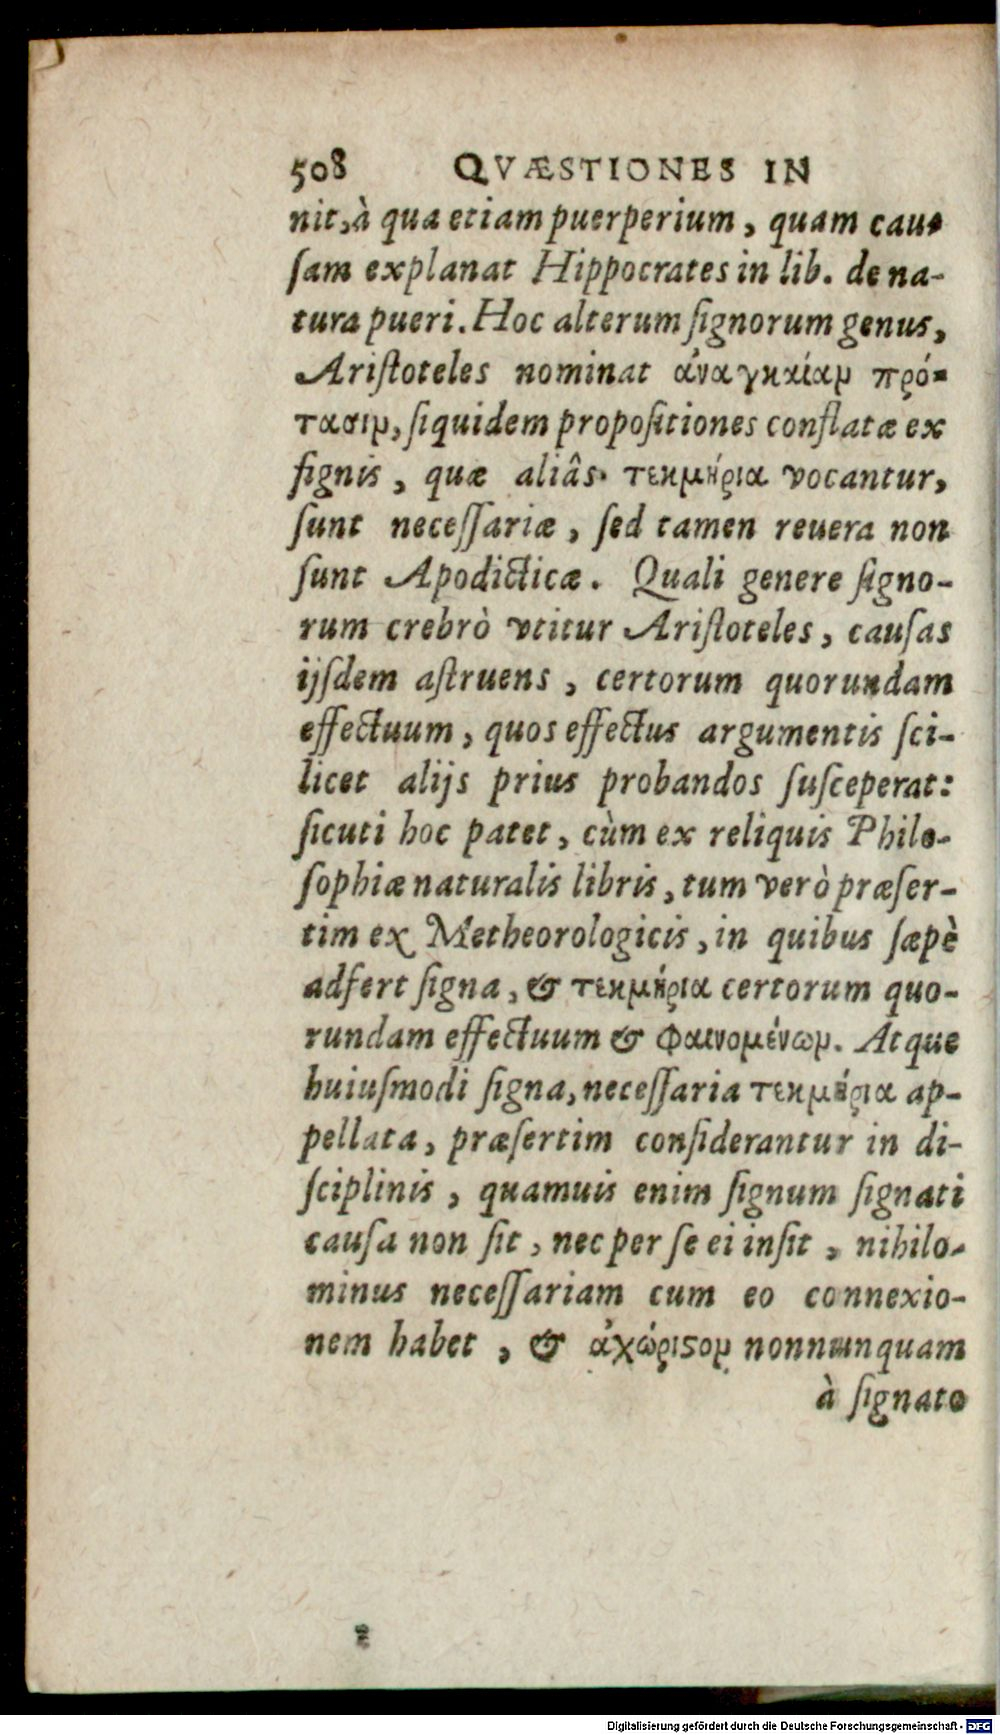 508 QVÆSTIONES IN
nit, à qua etiam puerperium, quam cau-
ſam explanat Hippocrates in lib. de na-
tura pueri. Hoc alterum ſignorum genus,
Ariſtoteles nominat ἀναγκαίαν πρό-
τασιν, ſiquidem propoſitiones conflatæ ex
ſignis, quæ aliâs τεκμήρια vocantur,
ſunt neceſſariæ, ſed tamen reuera non
ſunt Apodicticæ. Quali genere ſigno-
rum crebrò vtitur Ariſtoteles, cauſas
ijſdem aſtruens, certorum quorundam
effectuum, quos effectus argumentis ſci-
licet alijs prius probandos ſuſceperat:
ſicuti hoc patet, cùm ex reliquis Philo-
ſophiæ naturalis libris, tum verò præſer-
tim ex Metheorologicis, in quibus ſæpè
adfert ſigna, & τεκμήρια certorum quo-
rundam effectuum & φαινομένων. Atque
huiuſmodi ſigna, neceſſaria τεκμήρια ap-
pellata, præſertim conſiderantur in di-
ſciplinis, quamuis enim ſignum ſignati
cauſa non ſit, nec per ſe ei inſit, nihilo-
minus neceſſariam cum eo connexio-
nem habet, & ἀχώριϛον nonnunquam
à ſignato
Digitalisierung gefördert durch die Deutsche Forschungsgemeinschaft - DFG